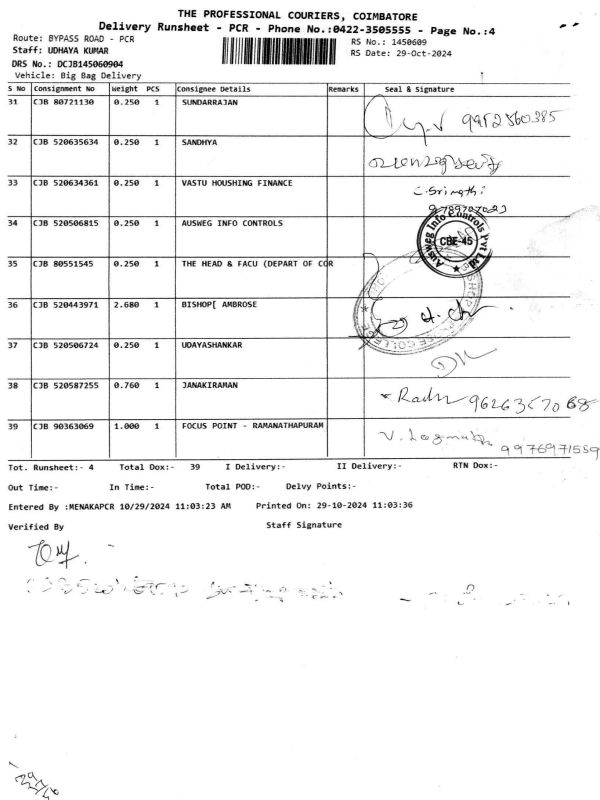 THE PROFESSIONAL COURIERS, COIMBATORE
Delivery Runsheet - PCR - Phone No.:0422-3505555 - Page No.:4
Route: BYPASS ROAD - PCR
RS No.: 1450609
Staff: UDHAYA KUMAR
RS Date: 29-Oct-2024
DRS No.: DCJB145060904
Vehicle: Big Bag Delivery
S No Consignment No Weight PCS Consignee Details Remarks Seal & Signature
31 CJB 80721130 0.250 1 SUNDARRAJAN
32 CJB 520635634 0.250 1 SANDHYA
33 CJB 520634361 0.250 1 VASTU HOUSHING FINANCE C.Srimathi
34 CJB 520506815 0.250 1 AUSWEG INFO CONTROLS Ausweg Info Controls Pvt Ltd CBE-45
35 CJB 80551545 0.250 1 THE HEAD & FACU (DEPART OF COR
36 CJB 520443971 2.680 1 BISHOP[ AMBROSE
37 CJB 520506724 0.250 1 UDAYASHANKAR
38 CJB 520587255 0.760 1 JANAKIRAMAN
39 CJB 90363069 1.000 1 FOCUS POINT - RAMANATHAPURAM 9976971559
Tot. Runsheet:- 4 Total Dox:- 39 I Delivery:- II Delivery:- RTN Dox:-
Out Time:- In Time:- Total POD:- Delvy Points:-
Entered By :MENAKAPCR 10/29/2024 11:03:23 AM Printed On: 29-10-2024 11:03:36
Verified By Staff Signature